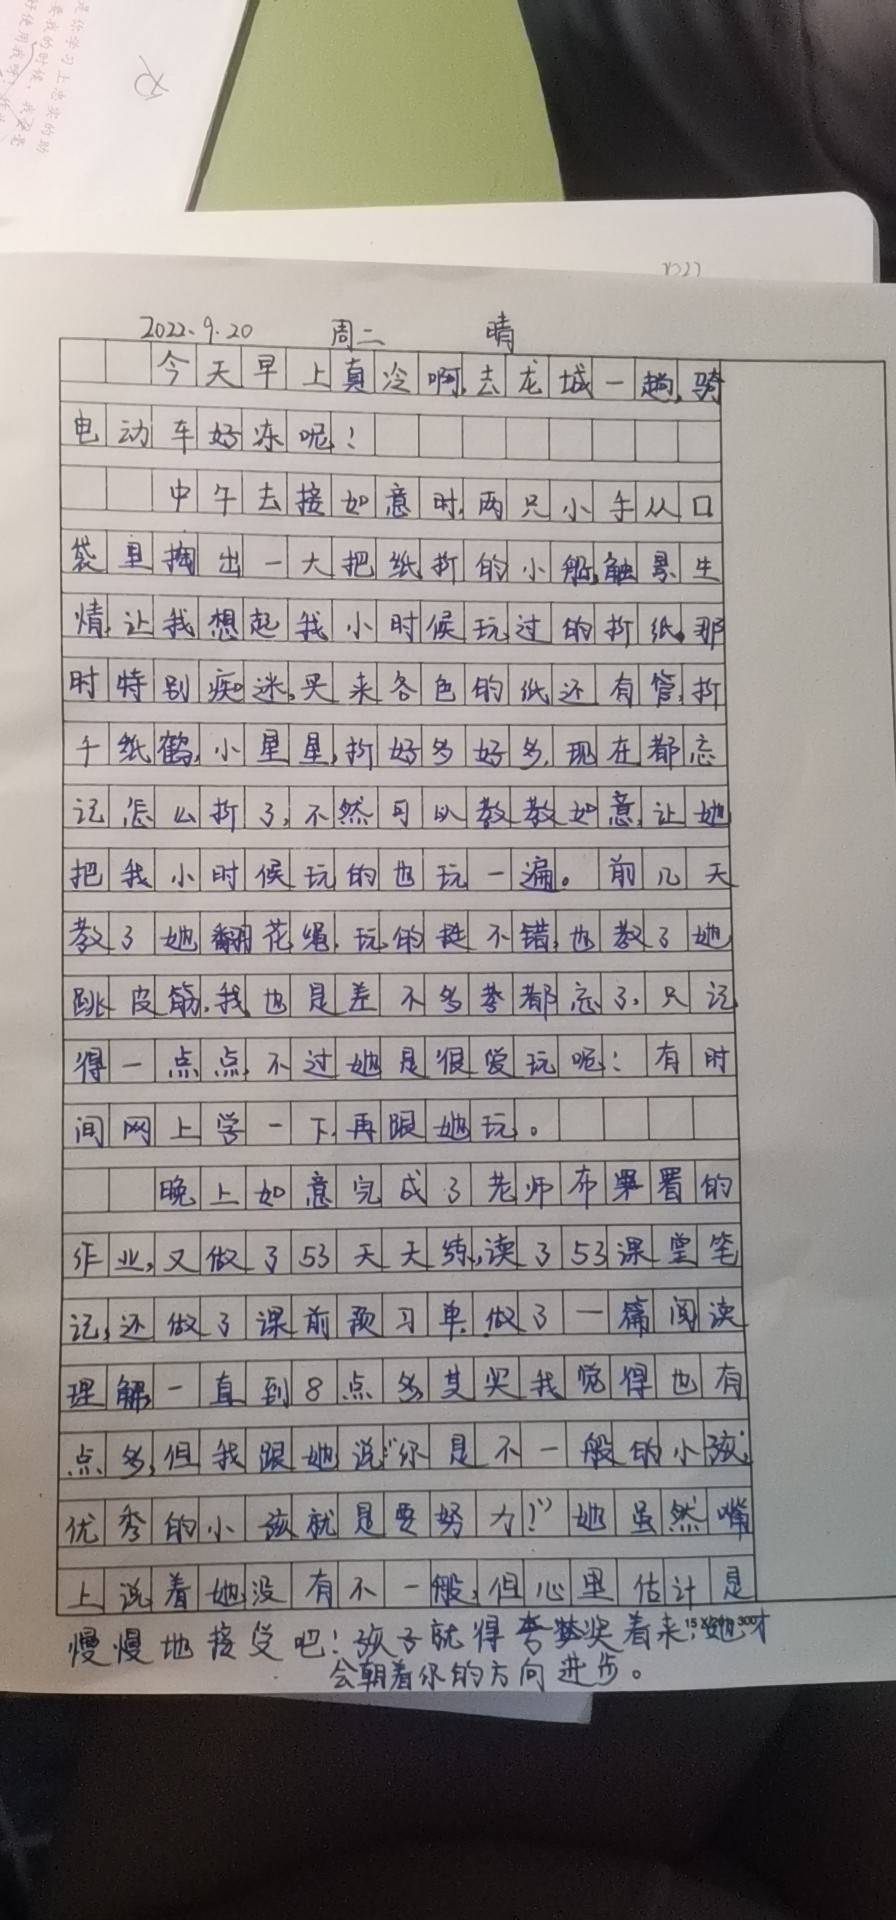 是你学习上忠实的助
要我的时候，我
好使用我呀
2022.9.20 周二 晴
今天早上真冷啊,去龙城一趟,骑
电动车好冻呢！
中午去接如意时,两只小手从口
袋里掏出一大把纸折的小船,触景生
情,让我想起我小时候玩过的折纸,那
时特别痴迷,买来各色的纸还有管,折
千纸鹤,小星星,折好多好多,现在都忘
记怎么折了,不然可以教教如意,让她
把我小时候玩的也玩一遍。前几天
教了她翻花绳,玩的挺不错,也教了她
跳皮筋,我也是差不多都忘了,只记
得一点点,不过她是很爱玩呢！有时
间网上学一下,再跟她玩。
晚上如意完成了老师布署的
作业,又做了53天天练,读了53课堂笔
记,还做了课前预习单,做了一篇阅读
理解,一直到8点多,其实我觉得也有
点多,但我跟她说:“你是不一般的小孩,
优秀的小孩就是要努力！”她虽然嘴
上说着她没有不一般,但心里估计是
慢慢地接受吧！孩子就得夸奖着来,她才
会朝着你的方向进步。